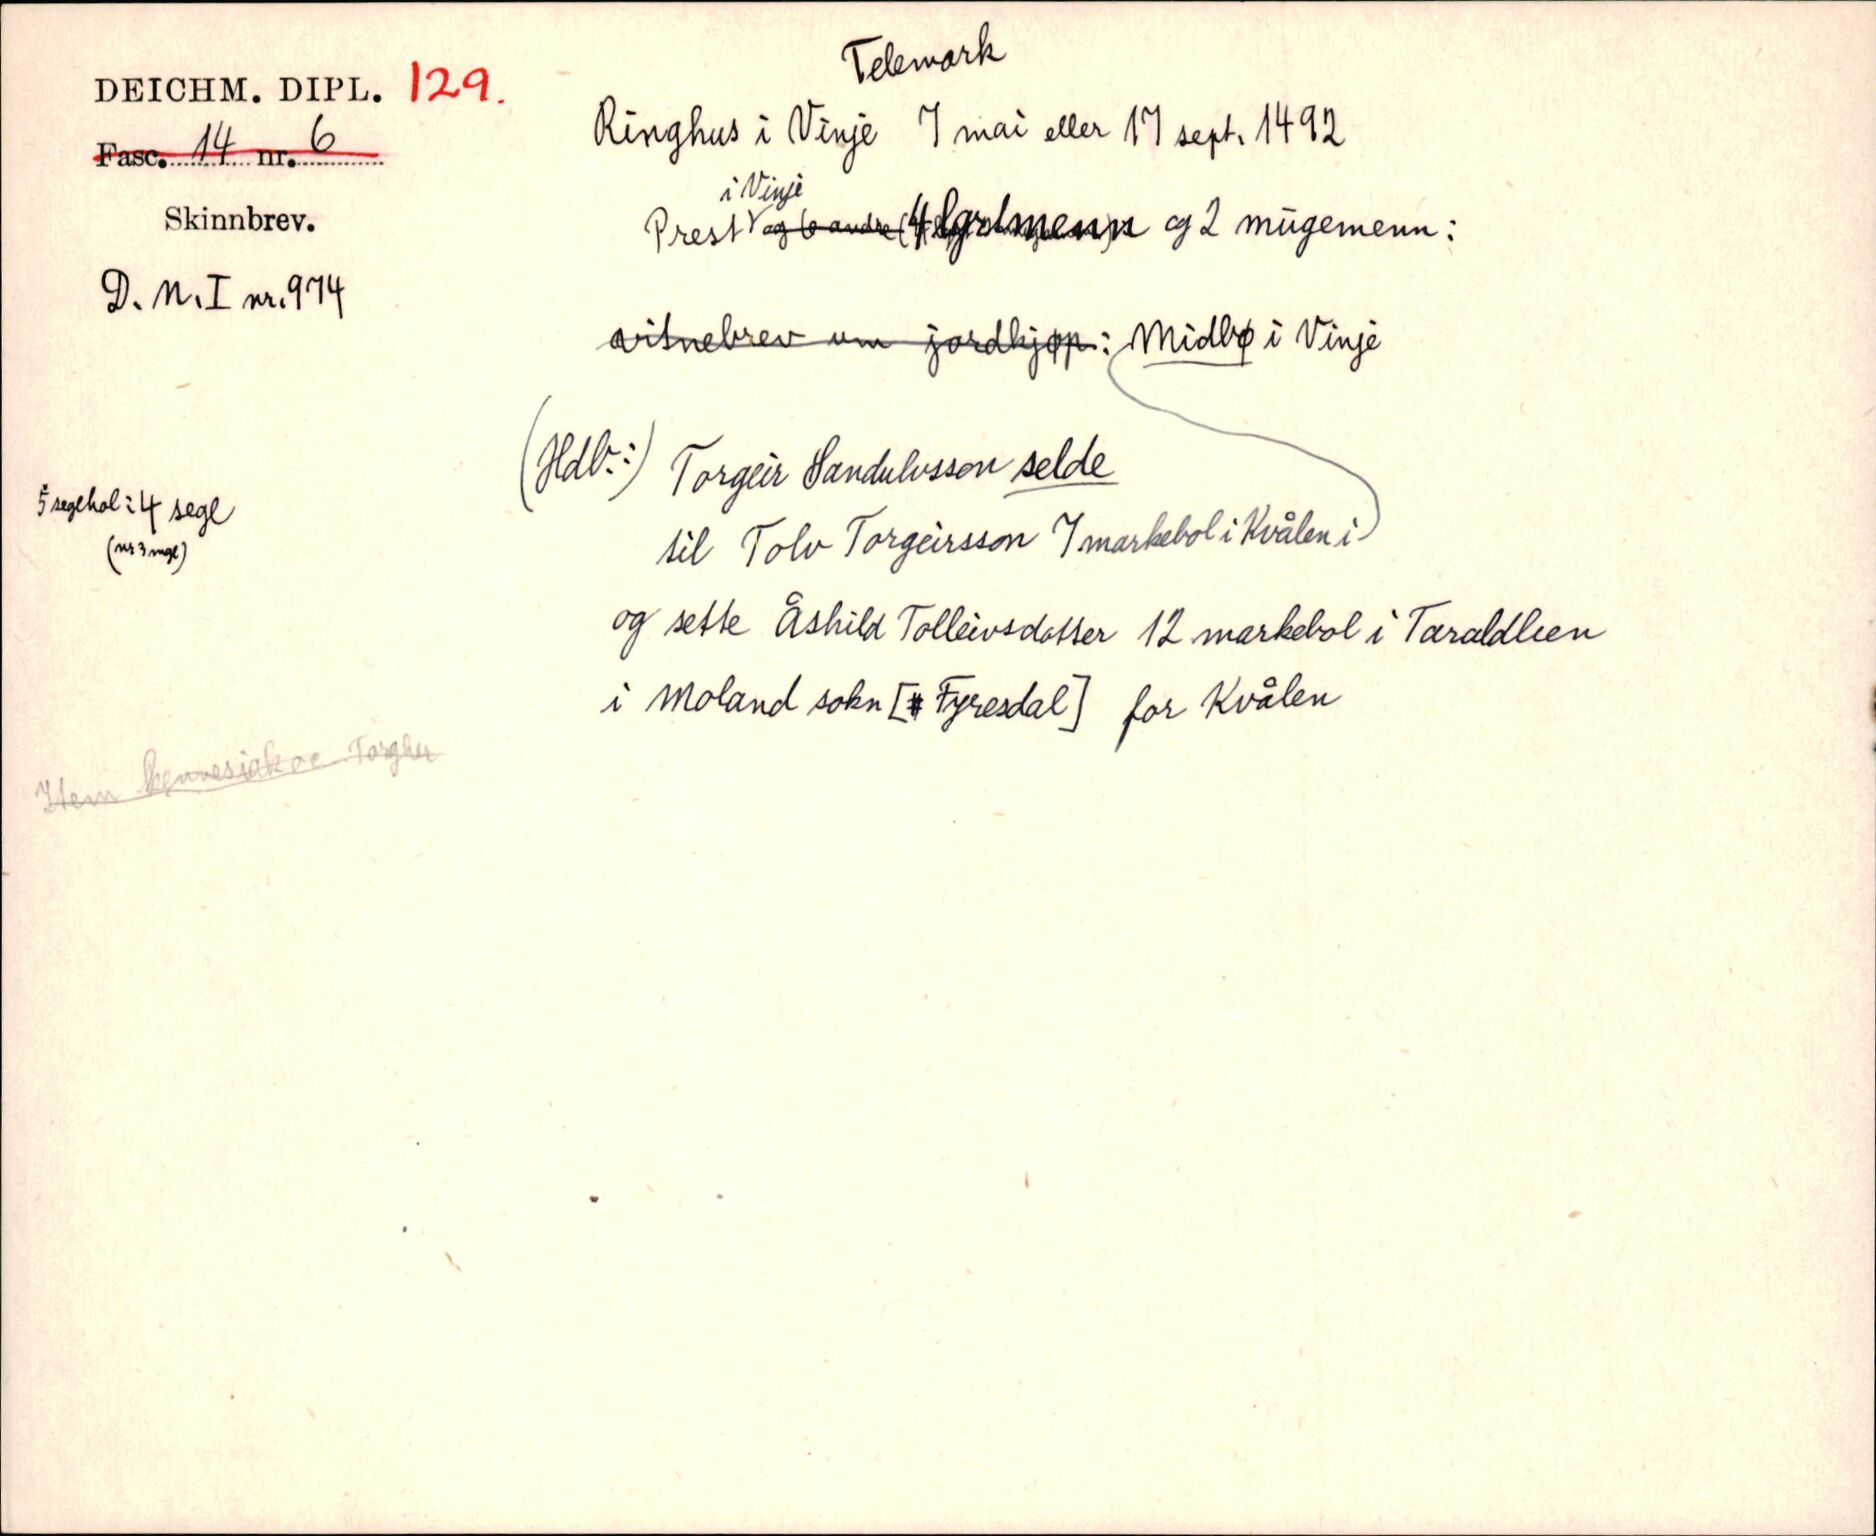 Telemark
DEICHM. DIPL. 129.
Fasc. 14 nr. 6
Skinnbrev.
D. N. I nr. 974
5 segehol: 4 segl
(nr 3 mgl)
Item kennesiak oc Torgher
Ringhus i Vinje 7 mai eller 17 sept. 1492
i Vinje
Prest og 6 andre (4 lgrdmenn og 2 mugemenn:
vitnebrev um jordkjøp: Midbø i Vinje
(Hdlr:) Torgeir Sandulvsson selde
til Tolv Torgeirsson 7 markebol i Kvålen i
og sette Åshild Tolleivsdotter 12 markebol i Taraldlien
i Moland sokn [Fyresdal] for Kvålen